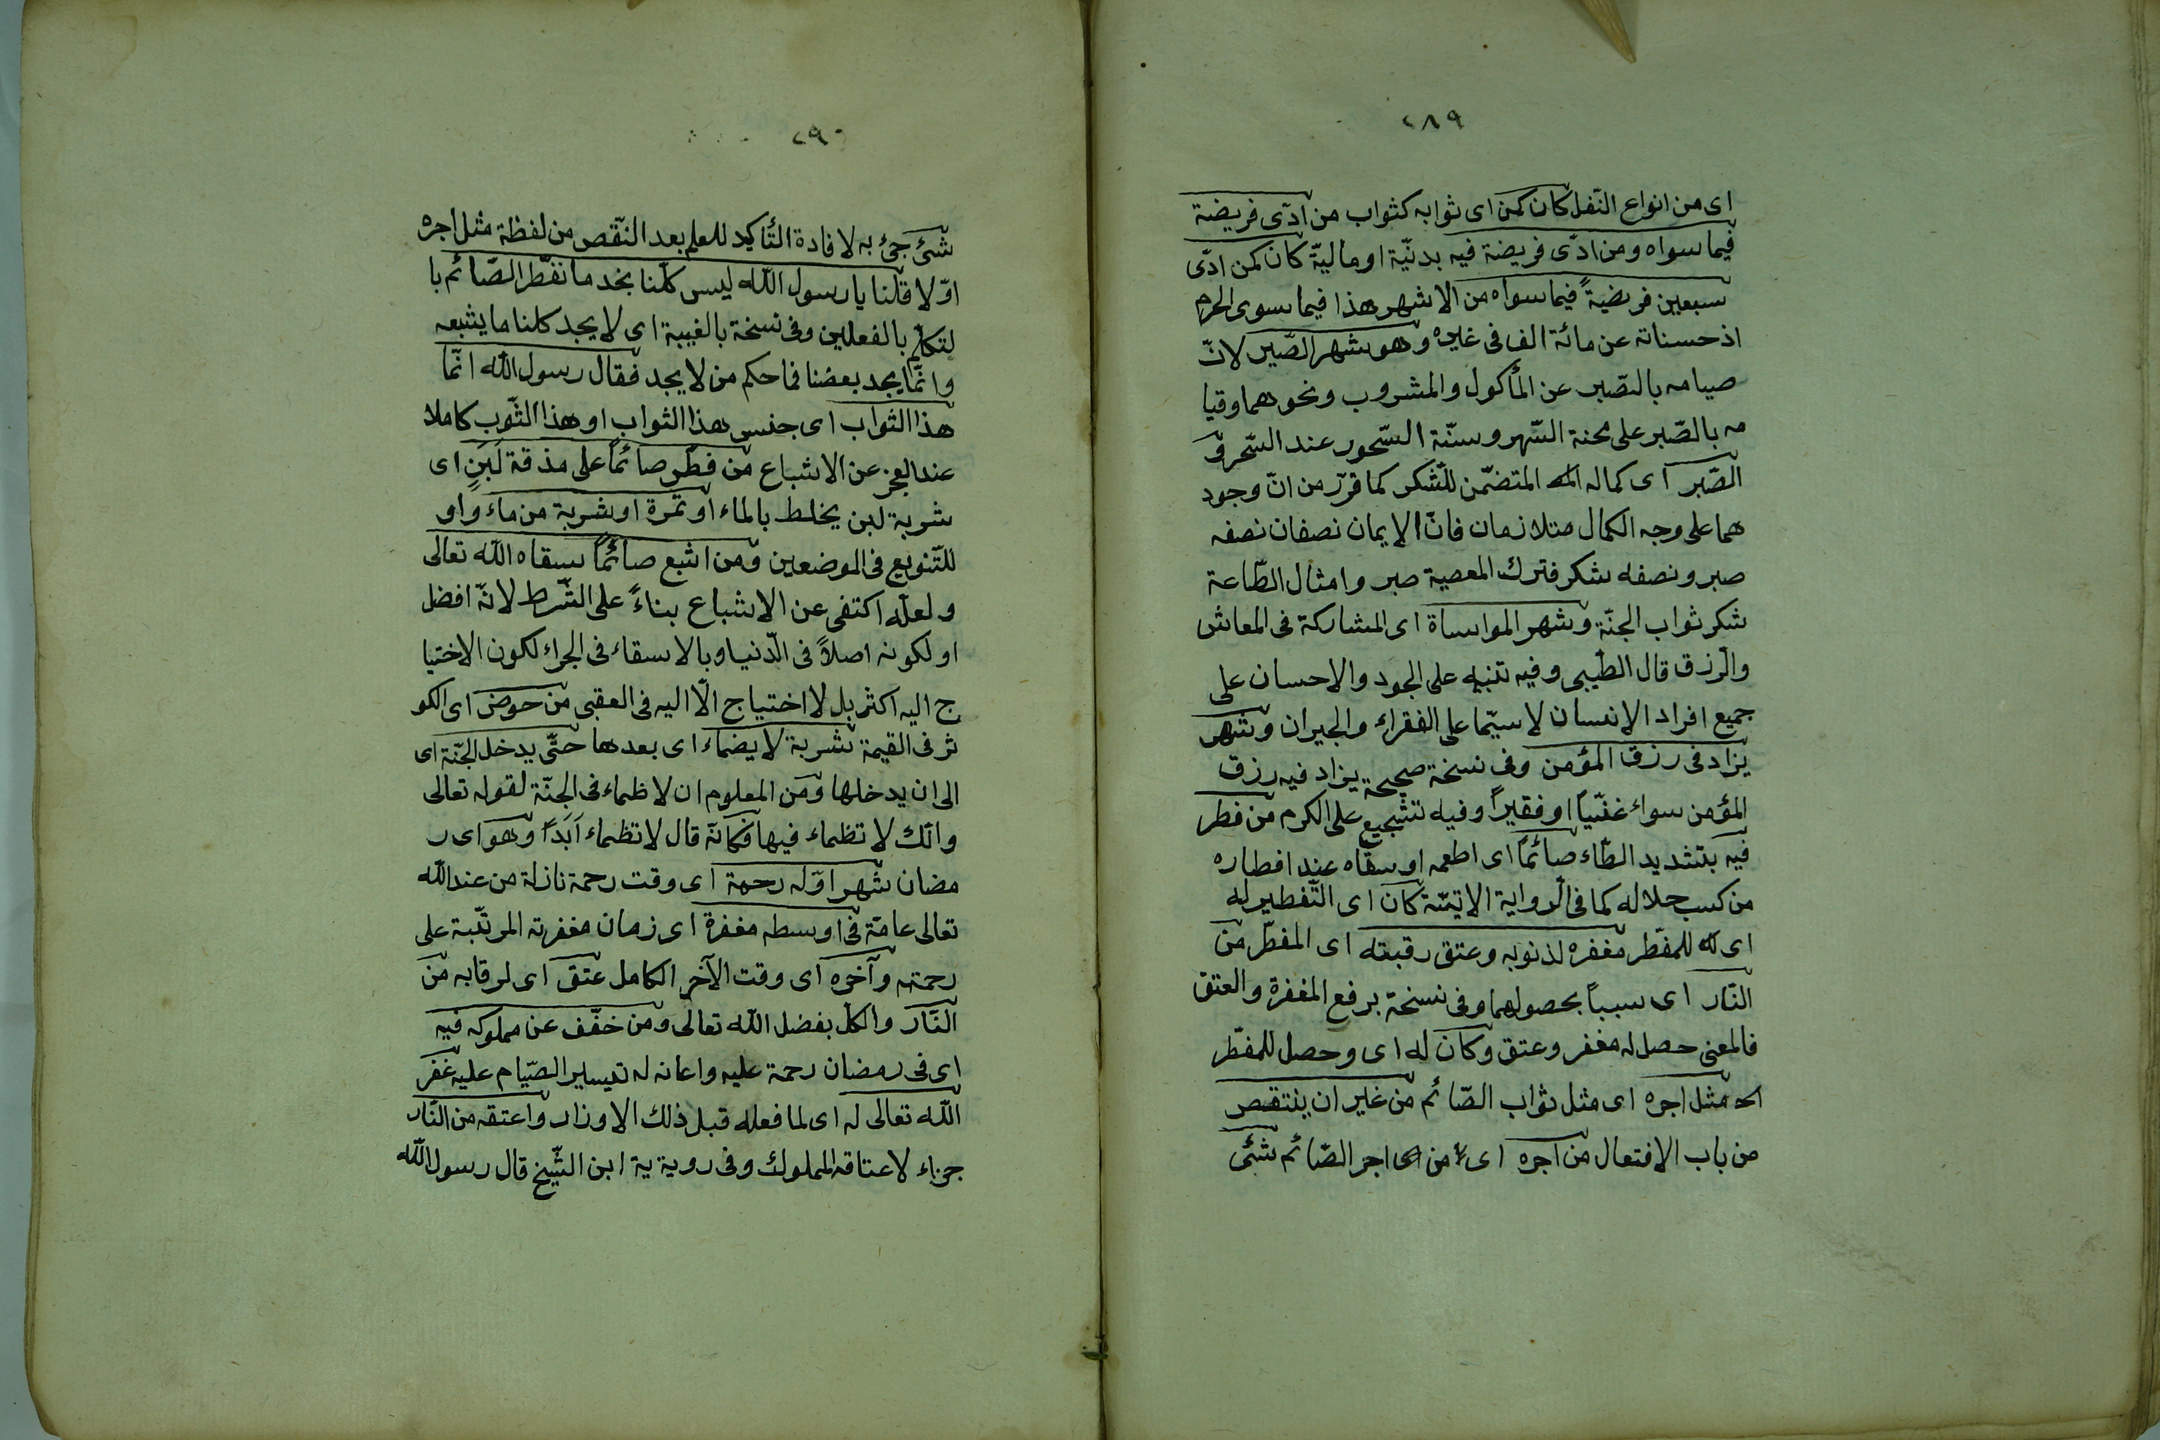 ٢٨٩
اى من انواع النّفل كان كمن اى ثوابه كثواب من ادّى فريضة
فيما سواه ومن ادّى فريضة فيه بدنيّة او ماليّة كان كمن ادّى
سبعين فريضةً فيما سواه من الاشهر هذا فيما سوى الحرم
اذ حسناته عن مائة الف فى غيره وهو شهر الصّبر لانّ
صيامه بالصّبر عن المأكول والمشروب ونحوهما وقيا
مه بالصّبر على محنة السّهر وسنّة السّحور عند السّحر و
الصّبر اى كماله المتضمّن للشّكر كما قرّر من انّ وجود
هما على وجه الكمال متلازمان فانّ الايمان نصفان نصفه
صبر ونصفه شكر فترك المعصية صبر وامثال الطّاعة
شكر ثواب الجنّة وشهر المواساة اى المشاركة فى المعاش
والرّزق قال الطّيبى وفيه تنبيه على الجود والاحسان على
جميع افراد الانسان لا سيّما على الفقراء والجيران وشهر
يزاد فى رزق المؤمن وفى نسخة صحيحة يزاد فيه رزق
المؤمن سواء غنّياً او فقيراً وفيه تشجيع على الكرم من فطر
فيه بتشديد الطّاء صائماً اى اطعمه او سقاه عند افطاره
من كسب حلاله كما فى الرّواية الاتيتة كان اى التّفطير له
اى للمفطّر مغفرة لذنوبه وعتق رقبته اى المفطّر من
النّار اى سبباً بحصولهما وفى نسخة برفع المغفرة والعتق
فالمعنى حصل له مغفر وعتق وكان له اى وحصل للمفطّر
مثل اجره اى مثل ثواب الصّائم من غير ان ينتقص
من باب الافتعال من اجره اى من اجر الصّائم شئى
٢٩٠
شئ جئ به لافادة التّأكيد للعلم بعد النّقص من لفظة مثل اجره
اوّلا قلنا يا رسول الله ليس كلّنا بخد ما نفطّر الصّائم با
لتكلّم بالفعلين وفى نسخة بالغيبة اى لا يجد كلنا ما يشبعه
وانّما يجد بعضنا فما حكم من لا يجد فقال رسول الله انّما
هذا الثواب اى جنس هذا الثواب او هذا الثّوب كاملا
عند العجز عن الاشباع من فطّر صائماً على مذقة لَبَنٍ اى
شربة لبن يخلط بالماء او تمرة او شربة من ماء واو
للتّنويع فى الموضعين ومن اشبع صائماً سقاه الله تعالى
ولعلّه اكتفى عن الاشباع بناءً على الشّرط لانّه افضل
او لكونه اصلاً فى الدّنيا وبالاسقاء فى الجزاء لكون الاختيا
ج اليه اكثر بل لا اختياج الّا اليه فى العقبى من حوض اى الكو
ثر فى القيمة شربة لا يضماء اى بعدها حتّى يدخل الجنّة اى
الى ان يدخلها ومن المعلوم ان لا ظماء فى الجنّة لقوله تعالى
وانّك لا تظماء فيها فكانّه قال لا تظماء اَبَداً وهو اى ر
مضان شهر اوّله رحمة اى وقت رحمة نازلة من عند الله
تعالى عامّة فى اوسطه مغفرة اى زمان مغفرته المرتّبة على
رحمته وآخره اى وقت الآخر الكامل عتق اى لرقابه من
النّار والكلّ بفضل الله تعالى ومن خفّف عن مملوكه فيه
اى فى رمضان رحمة عليه واعانه له تيسير الصّيام عليه غفر
الله تعالى له اى لما فعله قبل ذلك الاوزار واعتقه من النّار
جزاء لاعتاقه المملوك وفى روية ية ابن الشّيخ قال رسول الله